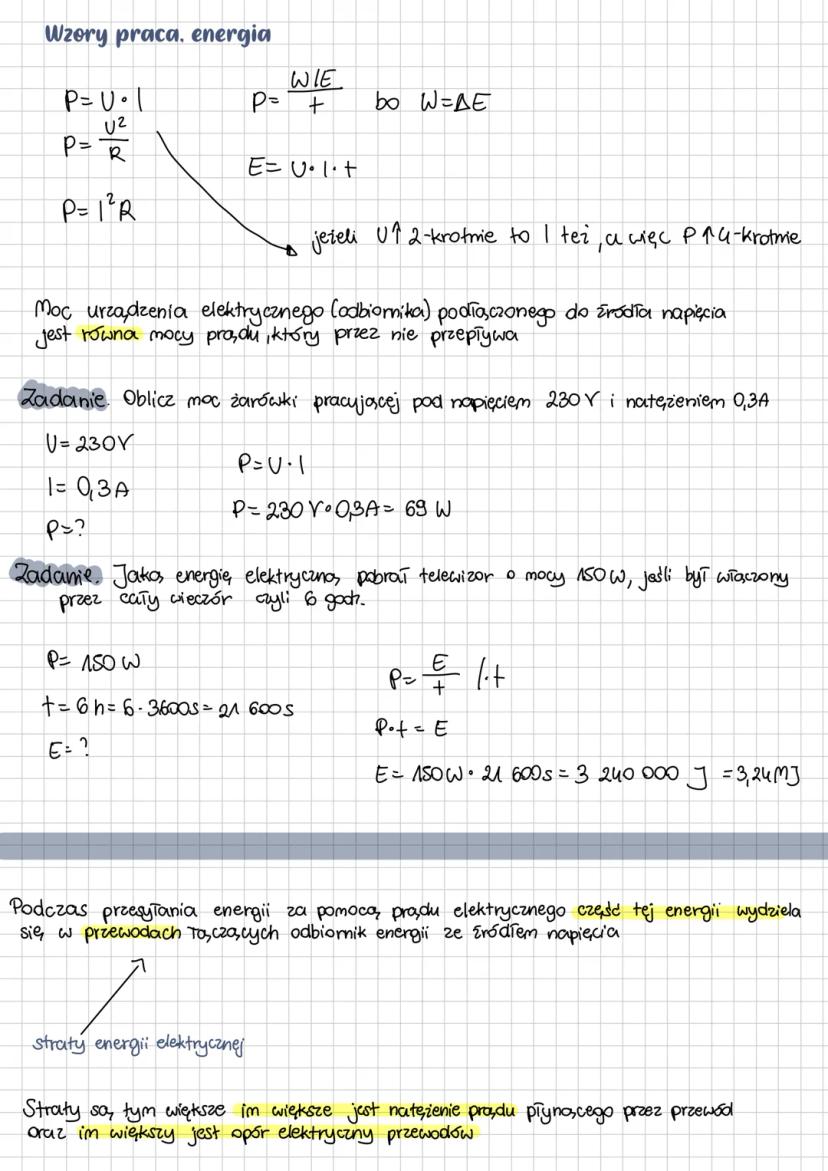 Wzory praca, energia
P = U · I
P = U²/R
P = I²R
P = W/E / t bo W = ΔE
E = U · I · t
jeżeli U↑ 2-krotnie to I też, a więc P↑ 4-krotnie
Moc urządzenia elektrycznego (odbiornika) podłączonego do źródła napięcia
jest równa mocy prądu, który przez nie przepływa
Zadanie. Oblicz moc żarówki pracującej pod napięciem 230 V i natężeniem 0,3A
U = 230V
I = 0,3A
P = ?
P = U · I
P = 230 V · 0,3A = 69 W
Zadanie. Jaką energię elektryczną pobrał telewizor o mocy 150 W, jeśli był włączony
przez cały wieczór czyli 6 godz.
P = 150 W
t = 6 h = 6 · 3600s = 21 600s
E = ?
P = E/t /·t
P · t = E
E = 150W · 21 600s = 3 240 000 J = 3,24MJ
Podczas przesyłania energii za pomocą prądu elektrycznego część tej energii wydziela
się w przewodach łączących odbiornik energii ze źródłem napięcia
straty energii elektrycznej
Straty są tym większe im większe jest natężenie prądu płynącego przez przewód
oraz im większy jest opór elektryczny przewodów